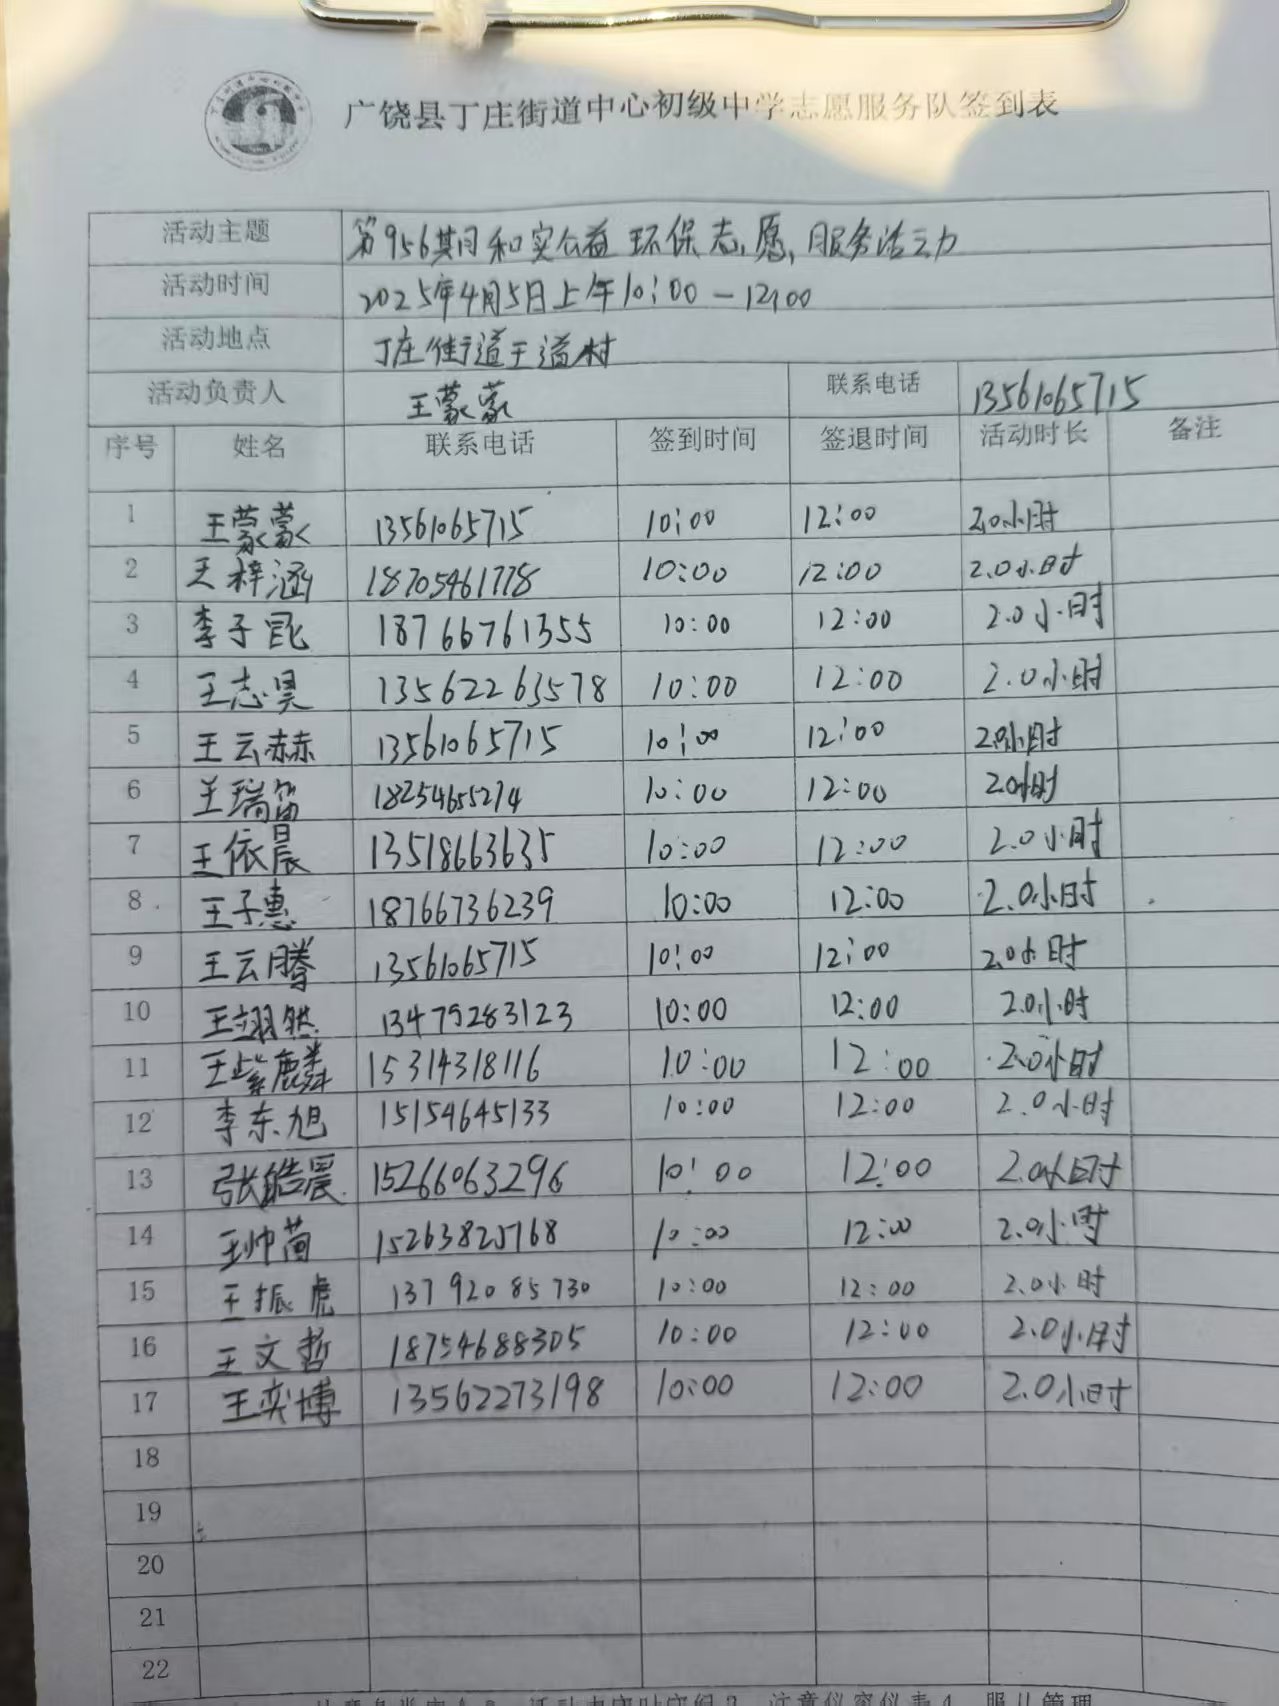 广饶县丁庄街道中心初级中学志愿服务队签到表
活动主题 第956期和实公益环保志愿服务活动
活动时间 2025年4月5日上午10:00-12:00
活动地点 丁庄街道王道村
活动负责人 王蒙蒙 联系电话 13561065715
序号 姓名 联系电话 签到时间 签退时间 活动时长 备注
1 王蒙蒙 13561065715 10:00 12:00 2.0小时
2 王梓涵 18705461778 10:00 12:00 2.0小时
3 李子昆 18766761355 10:00 12:00 2.0小时
4 王志昊 13562263578 10:00 12:00 2.0小时
5 王云赫 13561065715 10:00 12:00 2.0小时
6 王瑞笛 18254655274 10:00 12:00 2.0小时
7 王依晨 13518663635 10:00 12:00 2.0小时
8 王子惠 18766736239 10:00 12:00 2.0小时
9 王云腾 13561065715 10:00 12:00 2.0小时
10 王翊然 13479283123 10:00 12:00 2.0小时
11 王紫麟 15314318116 10:00 12:00 2.0小时
12 李东旭 15154645133 10:00 12:00 2.0小时
13 张皓晨 15266063296 10:00 12:00 2.0小时
14 王帅茼 15263825768 10:00 12:00 2.0小时
15 王振虎 13792085730 10:00 12:00 2.0小时
16 王文哲 18754688305 10:00 12:00 2.0小时
17 王奕博 13562273198 10:00 12:00 2.0小时
18
19
20
21
22